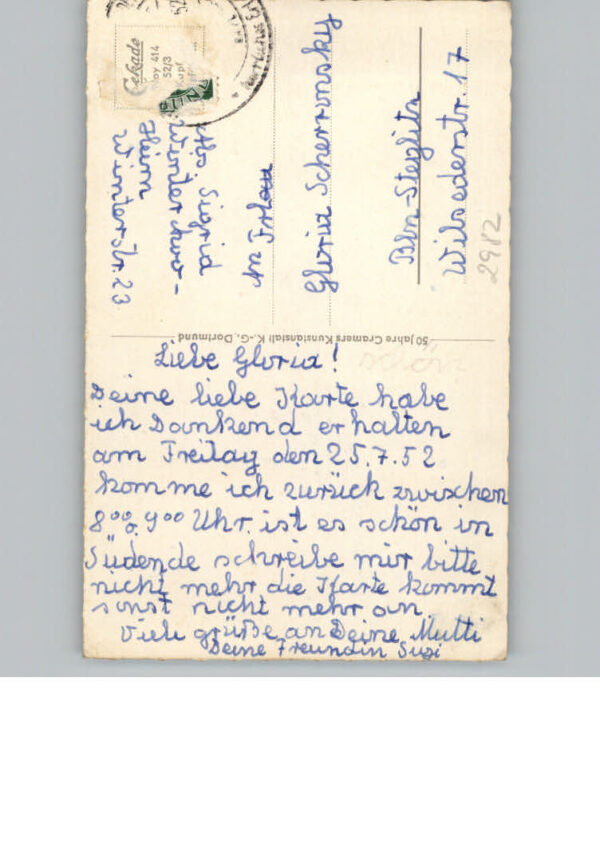 Liebe Gloria!
Deine liebe Karte habe
ich Dankend erhalten
am Freitag den 25.7.52
komme ich zurück zwischen
8⁰⁰ o. 9⁰⁰ Uhr. ist es schön in
Südende schreibe mir bitte
nicht mehr die Karte kommt
sonst nicht mehr an.
Viele grüße an Deine Mutti
Deine Freundin Susi
schön
50 Jahre Cramers Kunstanstalt K.-G., Dortmund
Cekade
414
52/3
Sigrid
Heim
Winterstr. 23
Gloria Scherronsky
Bln-Steglitz
Wilsederstr. 17
2982